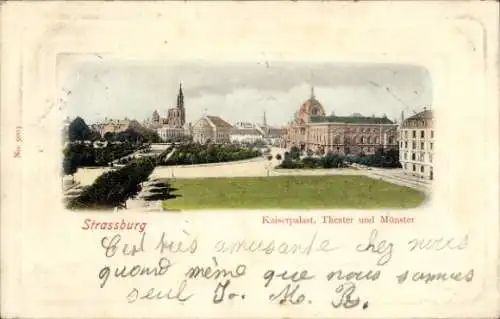 No. 9003
Strassburg
Kaiserpalast, Theater und Münster
C'est très amusante chez nous
quand même que nous sommes
seul. Jo. M. B.